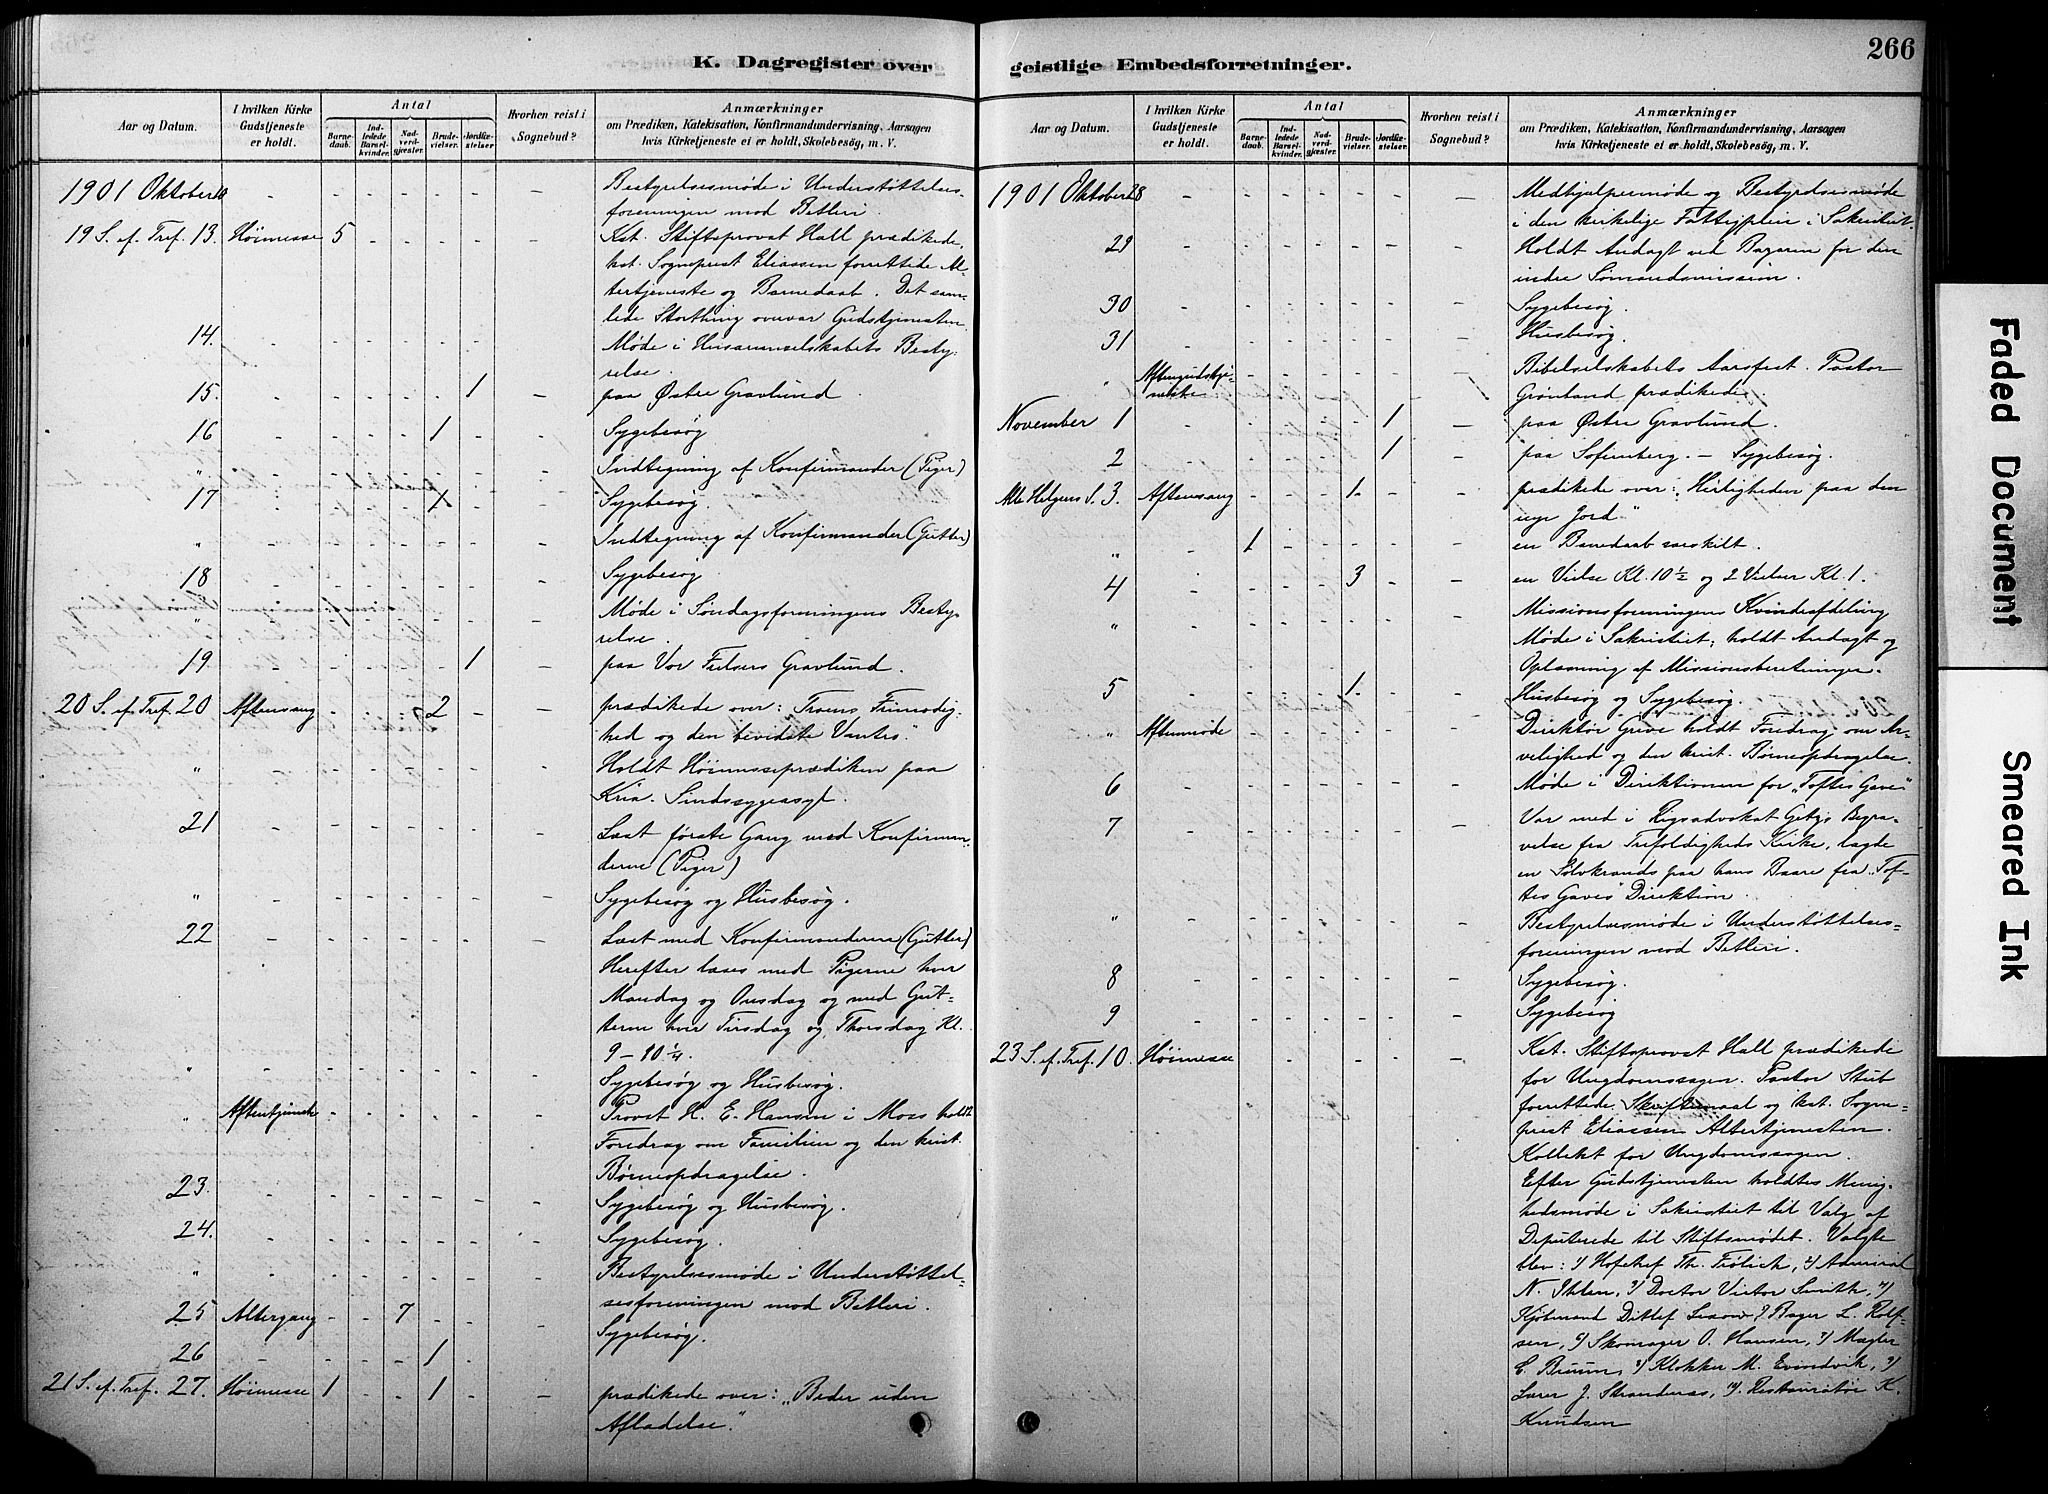 266
K. Dagregister over geistlige Embedsforretninger.
Aar og Datum.
I hvilken Kirke Gudstjeneste er holdt.
Antal
Barnedaab.
Indledede Barselkvinder.
Nadverdgjæster.
Brudevielser.
Jordfæstelser
Hvorhen reist i Sognebud?
Anmærkninger
om Prædiken, Katekisation, Konfirmandundervisning, Aarsagen
hvis Kirketjeneste ei er holdt, Skolebesøg, m. V.
1901 Oktober 10 - Bestyrelsesmøde i Understøttelses-
foreningen mod Betleri.
19 S. ef. Tref. 13. Høimesse 5 Kst. Stiftsprovst Hall prædikede,
kst. Sogneprest Eliassen forrettede Al-
tertjeneste og Barnedaab. Det sam-
lede Storthing overvar Gudstjenesten.
14. Møde i Husarmeselskabets Besty-
relse.
15. 1 paa Østre Gravlund.
16 1 Sygebesøg
" Indtegning af Konfirmander (Piger)
17 1 Sygebesøg.
" Indtegning af Konfirmander (Gutter)
18 Sygebesøg
" Møde i Søndagsforeningens Besty-
relse.
19. 1 paa Vor Frelsers Gravlund.
20 S. ef. Tref. 20 Aftensang 2 prædikede over: Troens Frimodig-
hed og den bevidste Vantro."
" Holdt Høimesseprædiken paa
Kria. Sindssygeasyl.
21 Læst første Gang med Konfirman-
derne (Piger)
" Sygebesøg og Husbesøg.
22 Læst med Konfirmanderne (Gutter)
Herefter læses med Pigerne hver
Mandag og Onsdag og med Gut-
terne hver Tirsdag og Thorsdag Kl.
9 - 10 1/4.
" Sygebesøg og Husbesøg.
" Aftentjeneste Provst H. E. Hansen i Moss holdt
Foredrag om Familien og den krist.
Børneopdragelse.
23. Sygebesøg og Husbesøg.
24. Sygebesøg.
" Bestyrelsesmøde i Understøttel-
sesforeningen mod Betleri.
25 Altergang 7 Sygebesøg.
26 1
21 S. ef. Tref. 27. Høimesse 1 1 prædikede over: "Beder uden
Afladelse."
Aar og Datum.
I hvilken Kirke Gudstjeneste er holdt.
Antal
Barnedaab.
Indledede Barselkvinder.
Nadverdgjæster.
Brudevielser.
Jordfæstelser.
Hvorhen reist i Sognebud?
Anmærkninger
om Prædiken, Katekisation, Konfirmandundervisning, Aarsagen
hvis Kirketjeneste ei er holdt, Skolebesøg, m. V.
1901 Oktober 28 - Medhjælpermøde og Bestyrelsesmøde
i den kirkelige Fattigpleie i Sakristiet.
29 Holdt Andagt ved Bazaren for den
indre Sømandsmission.
30 Sygebesøg.
31 Husbesøg.
" Aftengudstje-
neste Bibelselskabets Aarsfest. Pastor
Grønland prædikede.
November 1 1 paa Østre Gravlund.
2 1 paa Sofienberg. - Sygebesøg.
Alle Helgens S. 3. Aftensang 1 prædikede over: "Herligheden paa den
nye Jord."
" 1 en Barnedaab særskilt.
4 3 en Vielse Kl. 10 1/2 og 2 Vielser Kl. 1.
" Missionsforeningens Kvindeafdeling
Møde i Sakristiet; holdt Andagt og
Oplæsning af Missionsberetninger.
5 1 Husbesøg og Sygebesøg.
" Aftenmøde Direktør Greve holdt Foredrag om Ar-
velighed og den krist. Børneopdragelse.
6 Møde i Direktionen for "Toftes Gave"
7 Var med i Rigsadvokat Getz's Begra-
velse fra Trefoldigheds Kirke, lagde
en Sølvkrands paa hans Baare fra "Tof-
tes Gaves" Direktion.
" Bestyrelsesmøde i Understøttelses-
foreningen mod Betleri.
8 Sygebesøg.
9 Sygebesøg
23 S. ef. Tref. 10. Høimesse Kst. Stiftsprovst Hall prædikede
for Ungdomssagen. Pastor Stub
forrettede Skriftemaal og kst. Sogne-
prest Eliassen Altertjenesten.
Kollekt for Ungdomssagen.
Efter Gudstjenesten holdtes Menig-
hedsmøde i Sakristiet til Valg af
Deputerede til Stiftsmødet. Valgte
blev: 1) Hofchef Th. Frölich, 2) Admiral
N. Ihlen, 3) Doctor Victor Smith, 4)
Kjøbmand Ditlef Lexow 5) Bager L. Rolf-
sen, 6) Skomager O. Hansen, 7) Mægler
E. Bruun, 8) Klokker M. Evindvik, 9)
Lærer J. Strandenæs, 10) Restauratør K.
Knudsen
Faded Document
Smeared Ink